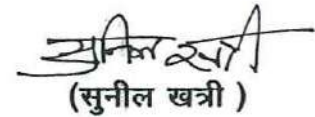 सुनील खत्री
(सुनील खत्री )